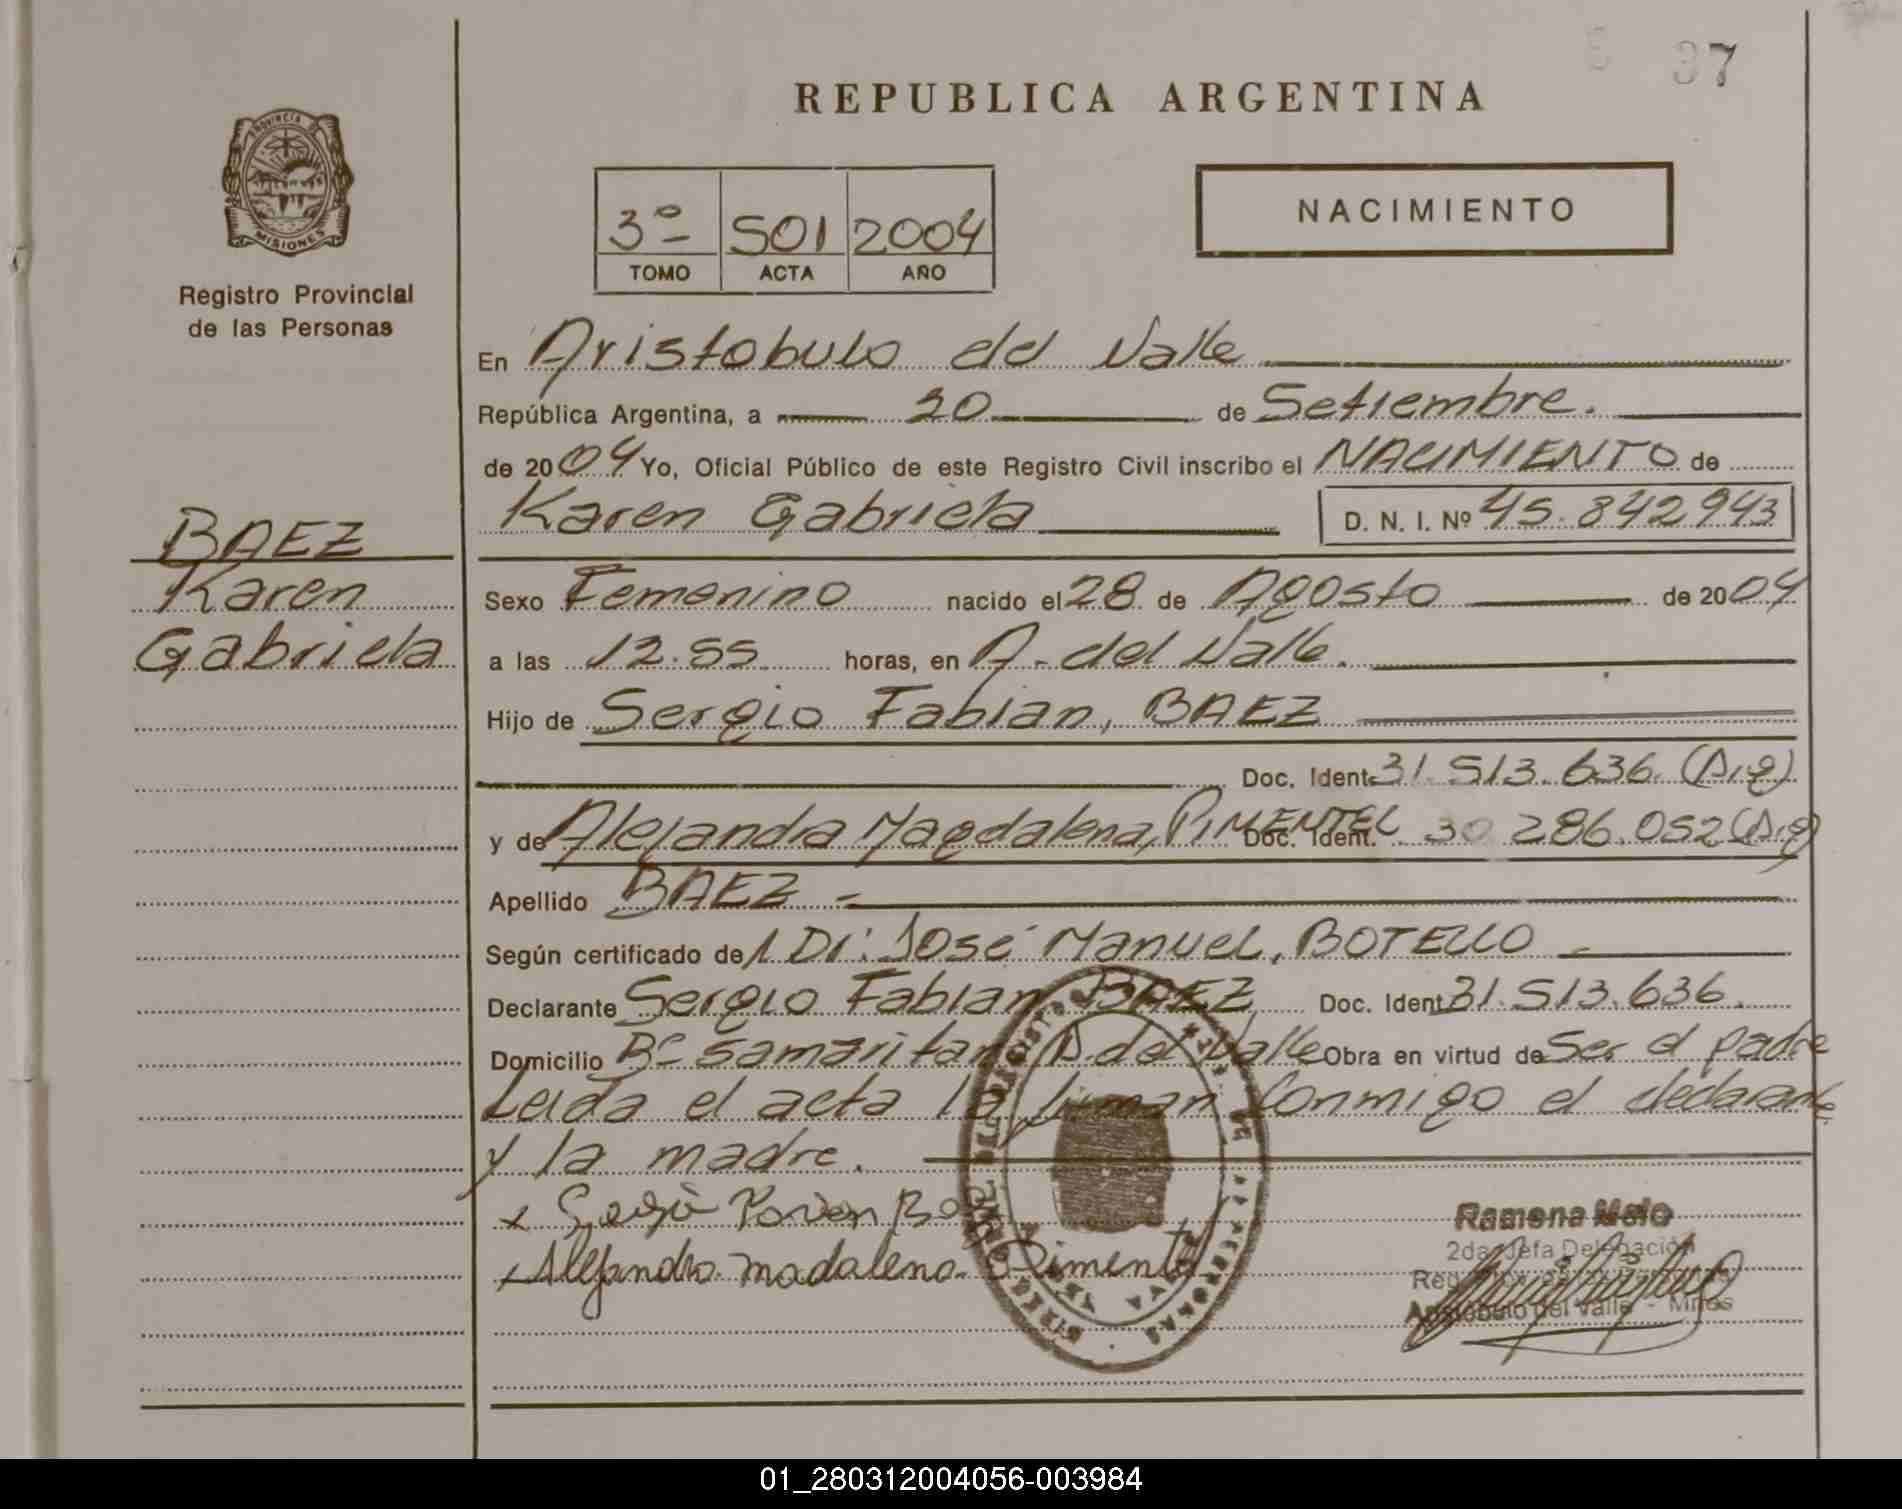 37
REPUBLICA ARGENTINA
PROVINCIA DE
MISIONES
Registro Provincial
de las Personas
3º 501 2004
TOMO ACTA AÑO
NACIMIENTO
En Aristobulo del Valle
República Argentina, a 20 de Setiembre.
de 2004 Yo, Oficial Público de este Registro Civil inscribo el NACIMIENTO de
Karen Gabriela D. N. I. Nº 45.842943
BAEZ
Karen
Gabriela
Sexo Femenino nacido el 28 de Agosto de 2004
a las 12.55 horas, en A. del Valle.
Hijo de Sergio Fabian, BAEZ
Doc. Ident. 31.513.636. (Arg)
y de Alejandra Magdalena, PIMENTEL Doc. Ident. 30.286.052 (Arg)
Apellido BAEZ
Según certificado de Dr: José Manuel, BOTELLO
Declarante Sergio Fabian BAEZ Doc. Ident. 31.513.636.
Domicilio Bº Samaritano A. del Valle Obra en virtud de Ser el padre
Leida el acta la firman Conmigo el declarante
y la madre.
Alejandra madalena Pimentel
Ramona Melo
2da. Jefa Delegación
Aristóbulo del Valle - Mnes
01_280312004056-003984